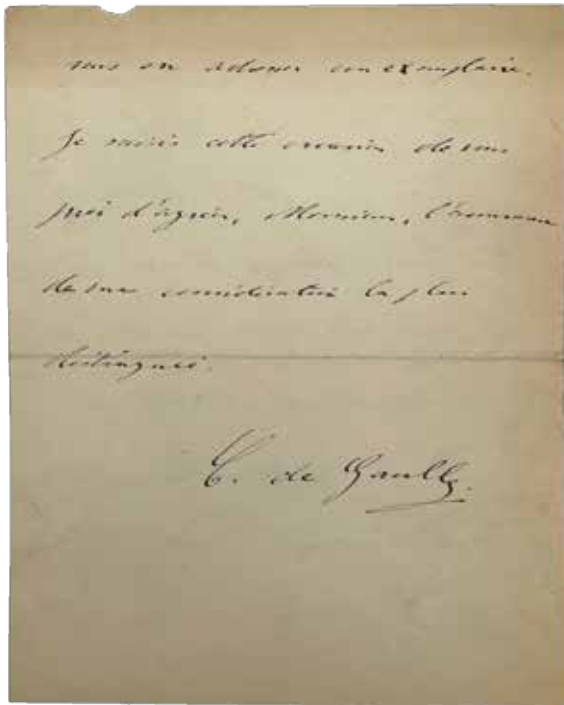 vous en adresser un exemplaire.
Je saisis cette occasion de vous
prier d'agréer, Monsieur, l'assurance
de ma considération la plus
distinguée.
C. de Gaulle.